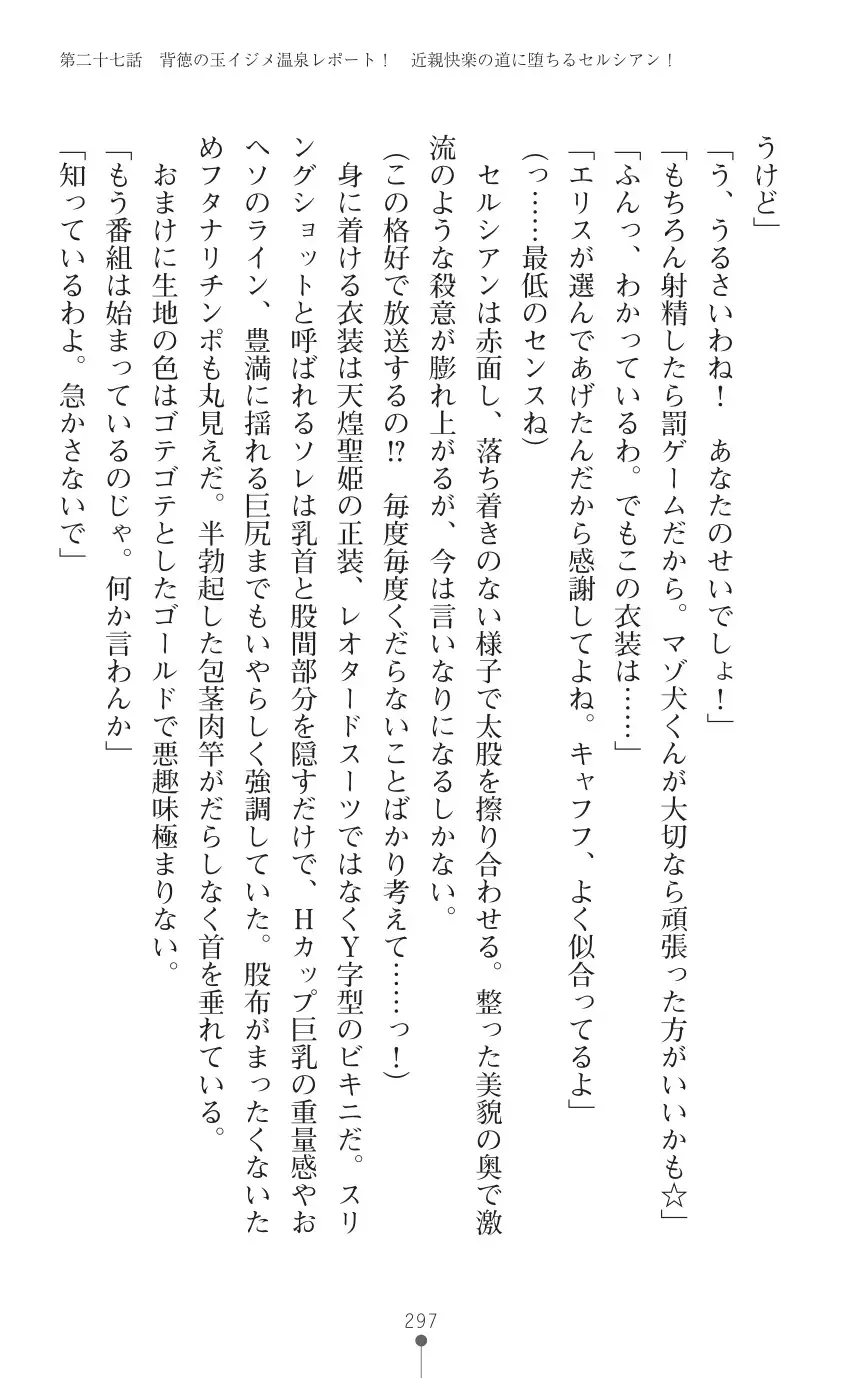 第二十七話　背徳の玉イジメ温泉レポート！　近親快楽の道に堕ちるセルシアン！
うけど」
「う、うるさいわね！　あなたのせいでしょ！」
「もちろん射精したら罰ゲームだから。マゾ犬くんが大切なら頑張った方がいいかも☆」
「ふんっ、わかっているわ。でもこの衣装は……」
「エリスが選んであげたんだから感謝してよね。キャフフ、よく似合ってるよ」
(っ……最低のセンスね)
　セルシアンは赤面し、落ち着きのない様子で太股を擦り合わせる。整った美貌の奥で激
流のような殺意が膨れ上がるが、今は言いなりになるしかない。
(この格好で放送するの!?　毎度毎度くだらないことばかり考えて……っ！)
　身に着ける衣装は天煌聖姫の正装、レオタードスーツではなくＹ字型のビキニだ。スリ
ングショットと呼ばれるソレは乳首と股間部分を隠すだけで、Ｈカップ巨乳の重量感やお
ヘソのライン、豊満に揺れる巨尻までもいやらしく強調していた。股布がまったくないた
めフタナリチンポも丸見えだ。半勃起した包茎肉竿がだらしなく首を垂れている。
　おまけに生地の色はゴテゴテとしたゴールドで悪趣味極まりない。
「もう番組は始まっているのじゃ。何か言わんか」
「知っているわよ。急かさないで」
297